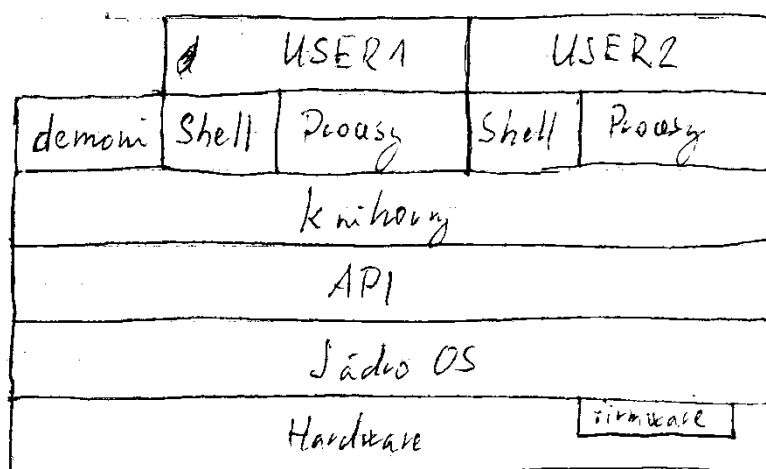 USER1 USER2
demoni Shell Procesy Shell Procesy
Knihovny
API
Jádro OS
Hardware firmware